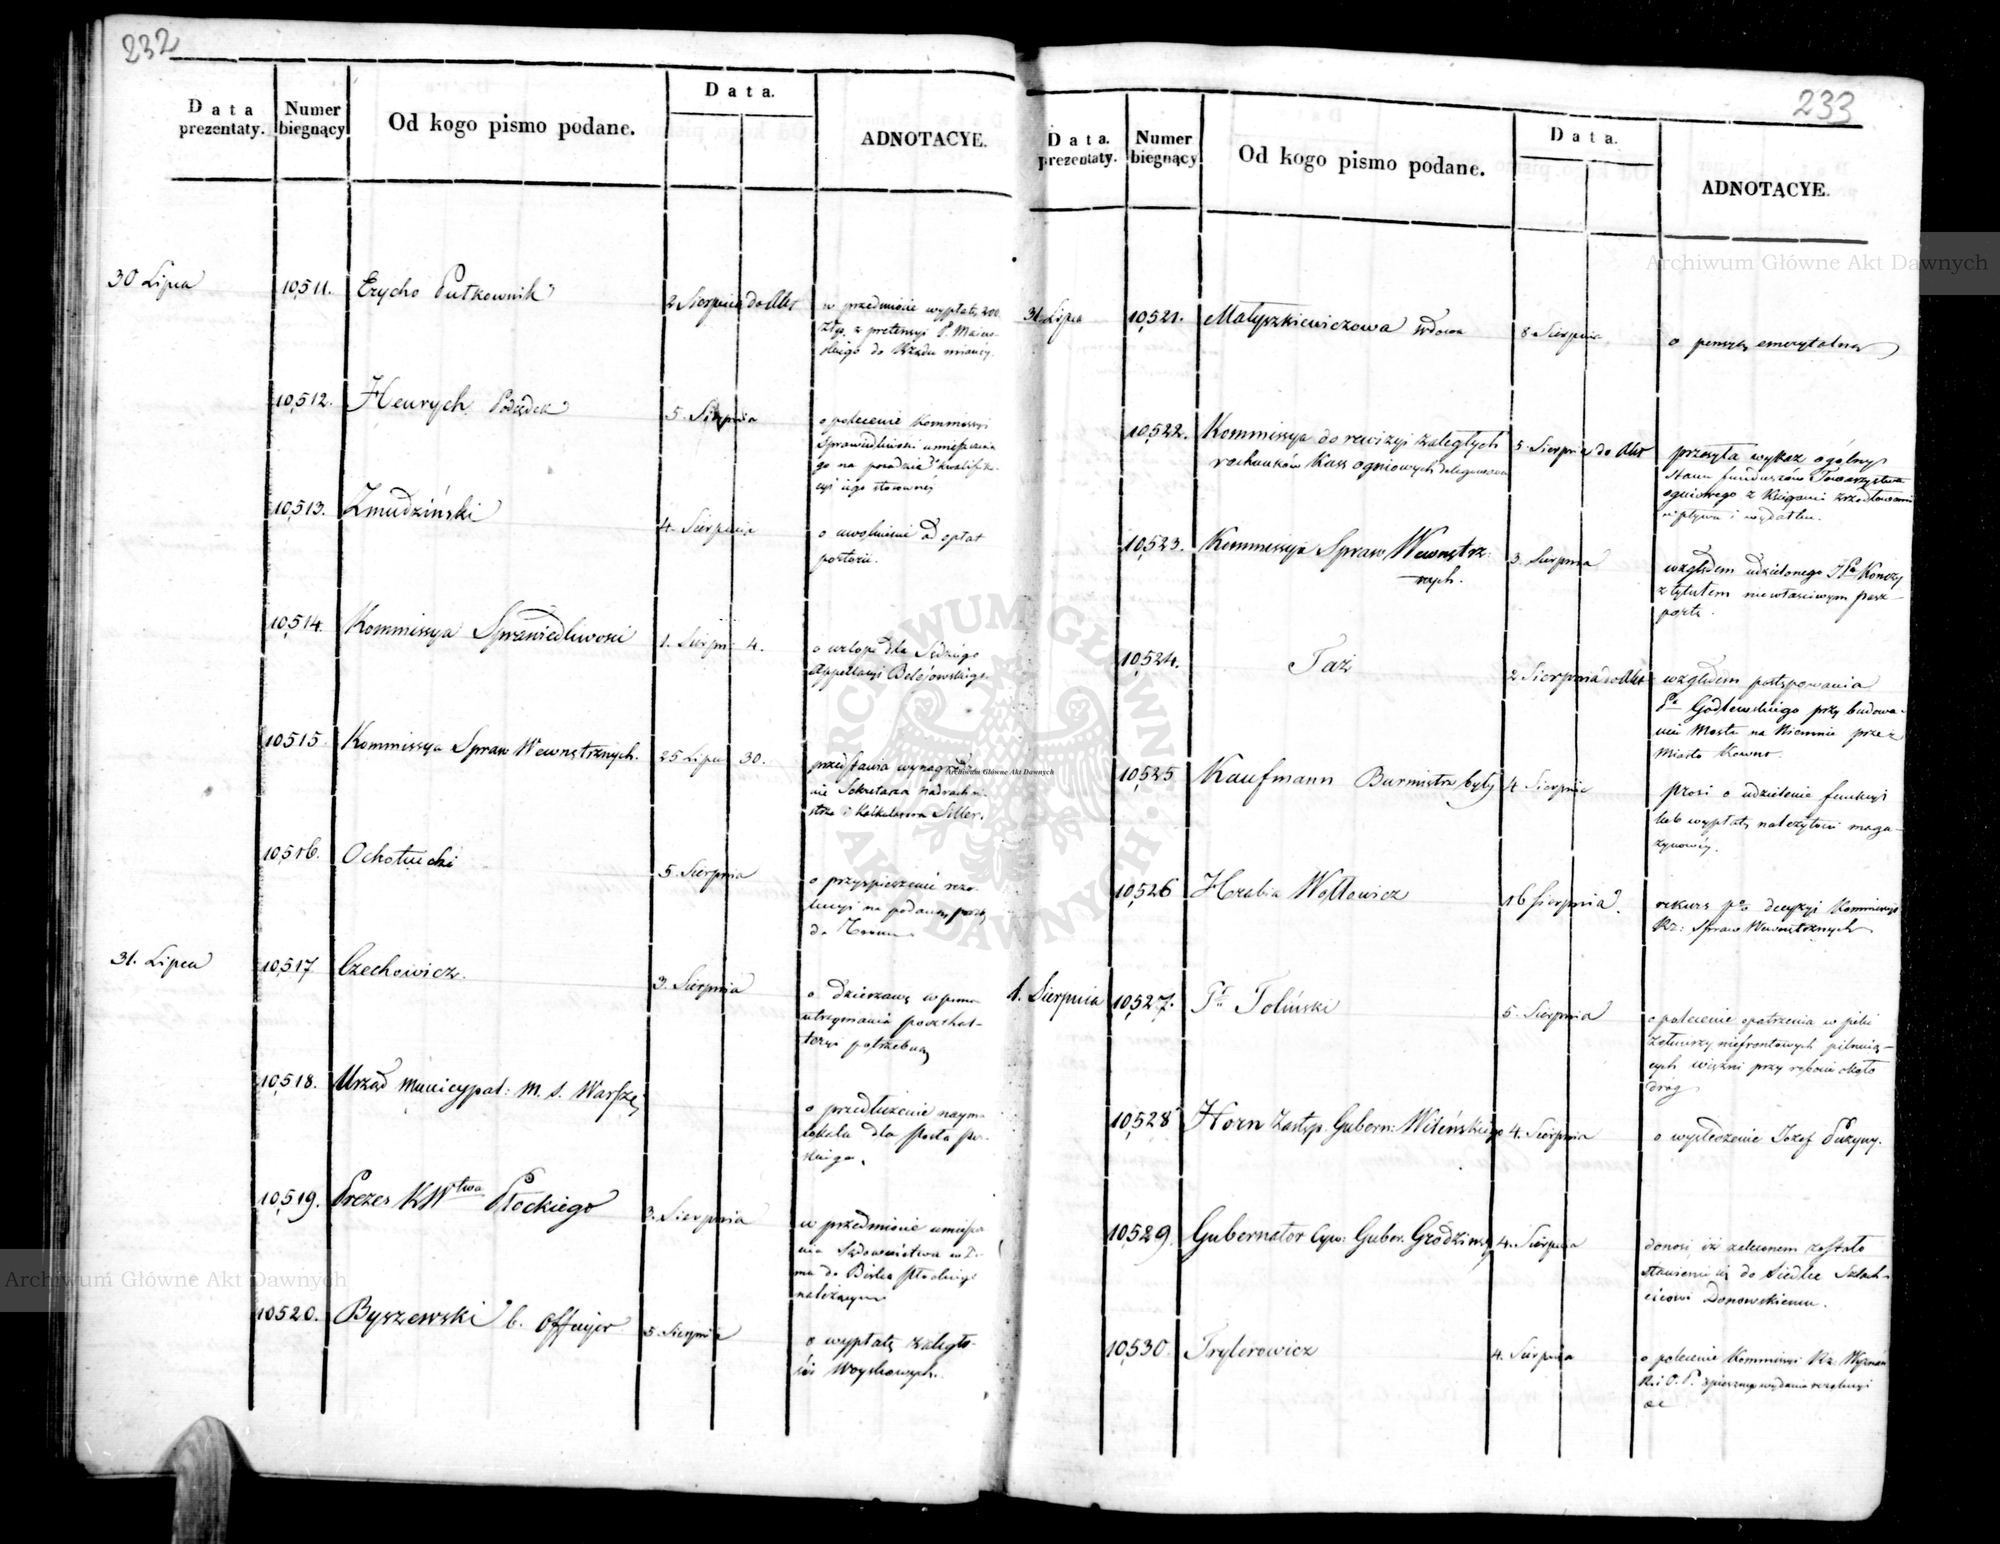 232
Data prezentaty.
Numer biegnący
Od kogo pismo podane.
Data.
ADNOTACYE.
30 Lipca
10,511.
Erycho Pułkownik
2 Sierpnia do Akt
w przedmiocie wypłaty 200
Złp. z pretensyi P. Maiew-
skiego do Rządu mianéy.
10,512.
Henrych
5. Sierpnia
o polecenie Kommissyi
Sprawiedliwości umieszczenia
go na posadzie kwalifika-
cyi iego stosownéy
10,513.
Zmudziński
4. Sierpnia
o uwolnienie od opłat
portorii.
10,514.
Kommissya Sprawiedliwości
1. Sierpn: 4.
o urlopie dla Sędziego
Appellacyi Beléjowskiego.
10,515.
Kommissya Spraw Wewnętrznych.
25 Lipca 30.
przedstawia wynagrodze-
nie Sekretarza
i Kalkulatora Siller.
10,516.
5. Sierpnia
o przyspieszenie rezo-
lucyi na podaną proźbę
do Tronu
31. Lipca
10,517
Czechowicz.
3. Sierpnia
o dzierzawę w
utrzymania poczthal-
teryi potrzebną
10,518.
Urząd Municypal: M. S. Warszy
o przedłużenie naymu
lokalu dla
10,519.
Prezes KWtwa Płockiego
3. Sierpnia
w przedmiocie
nia Sądownictwa
należącym
10520.
Byszewski b. Officyer
5 Sierpnia
o wypłatę zaległo-
ści Woyskowych.
233
Data. prezentaty.
Numer biegnący
Od kogo pismo podane.
Data.
ADNOTACYE.
31. Lipca
10,521.
Matyszkiewiczowa wdowa
8 Sierpnia
o pensyą emerytalną
10,522.
Kommissya do rewizyi zaległych
rachunków Kass ogniowych delegowana
5. Sierpnia do Akt
przesyła wykaz ogólny
stanu funduszów Towarzystwa
ogniowego z Księgami
wpływu i wydatku.
10,523.
Kommissya Spraw Wewnętrz-
nych.
3. Sierpnia
względem udzielonego JPu Konczy
z tytułem niewłaściwym pasz-
portu.
10,524.
Taż
2 Sierpnia do Akt
względem postępowania
Pa Godlewskiego przy budowa-
niu Mostu na Niemnie przez
Miasto Kowno.
10,525
Kaufmann Burmistrz były
4 Sierpnia
prosi o udzielenie funkcyi
lub wypłatę należytości maga-
zynowéy.
10,526
Hrabia Wołłowicz
16 Sierpnia.
rekurs pko decyzyi Kommissyi
Rz: Spraw Wewnętrznych
1. Sierpnia
10,527.
Toliński
5. Sierpnia
o polecenie opatrzenia w
Żołnierzy niefrontowych pilnują-
cych więźni przy robocie około
dróg
10,528
Horn Zastęp. Gubern: Wileńskiego
4. Sierpnia
o wyśledzenie Jozef Puzyny.
10,529
Gubernator Cyw: Guber. Grodzinskiy
4. Sierpnia
donosi iż zaleconem zostało
stawienie się do Siedlec Szlach-
cicowi Donowskiemu.
10,530.
Trylerowicz
4. Sierpnia
o polecenie Kommissyi Rz: Wyznań
R. i O. P. spiesznego wydania rezolucyi